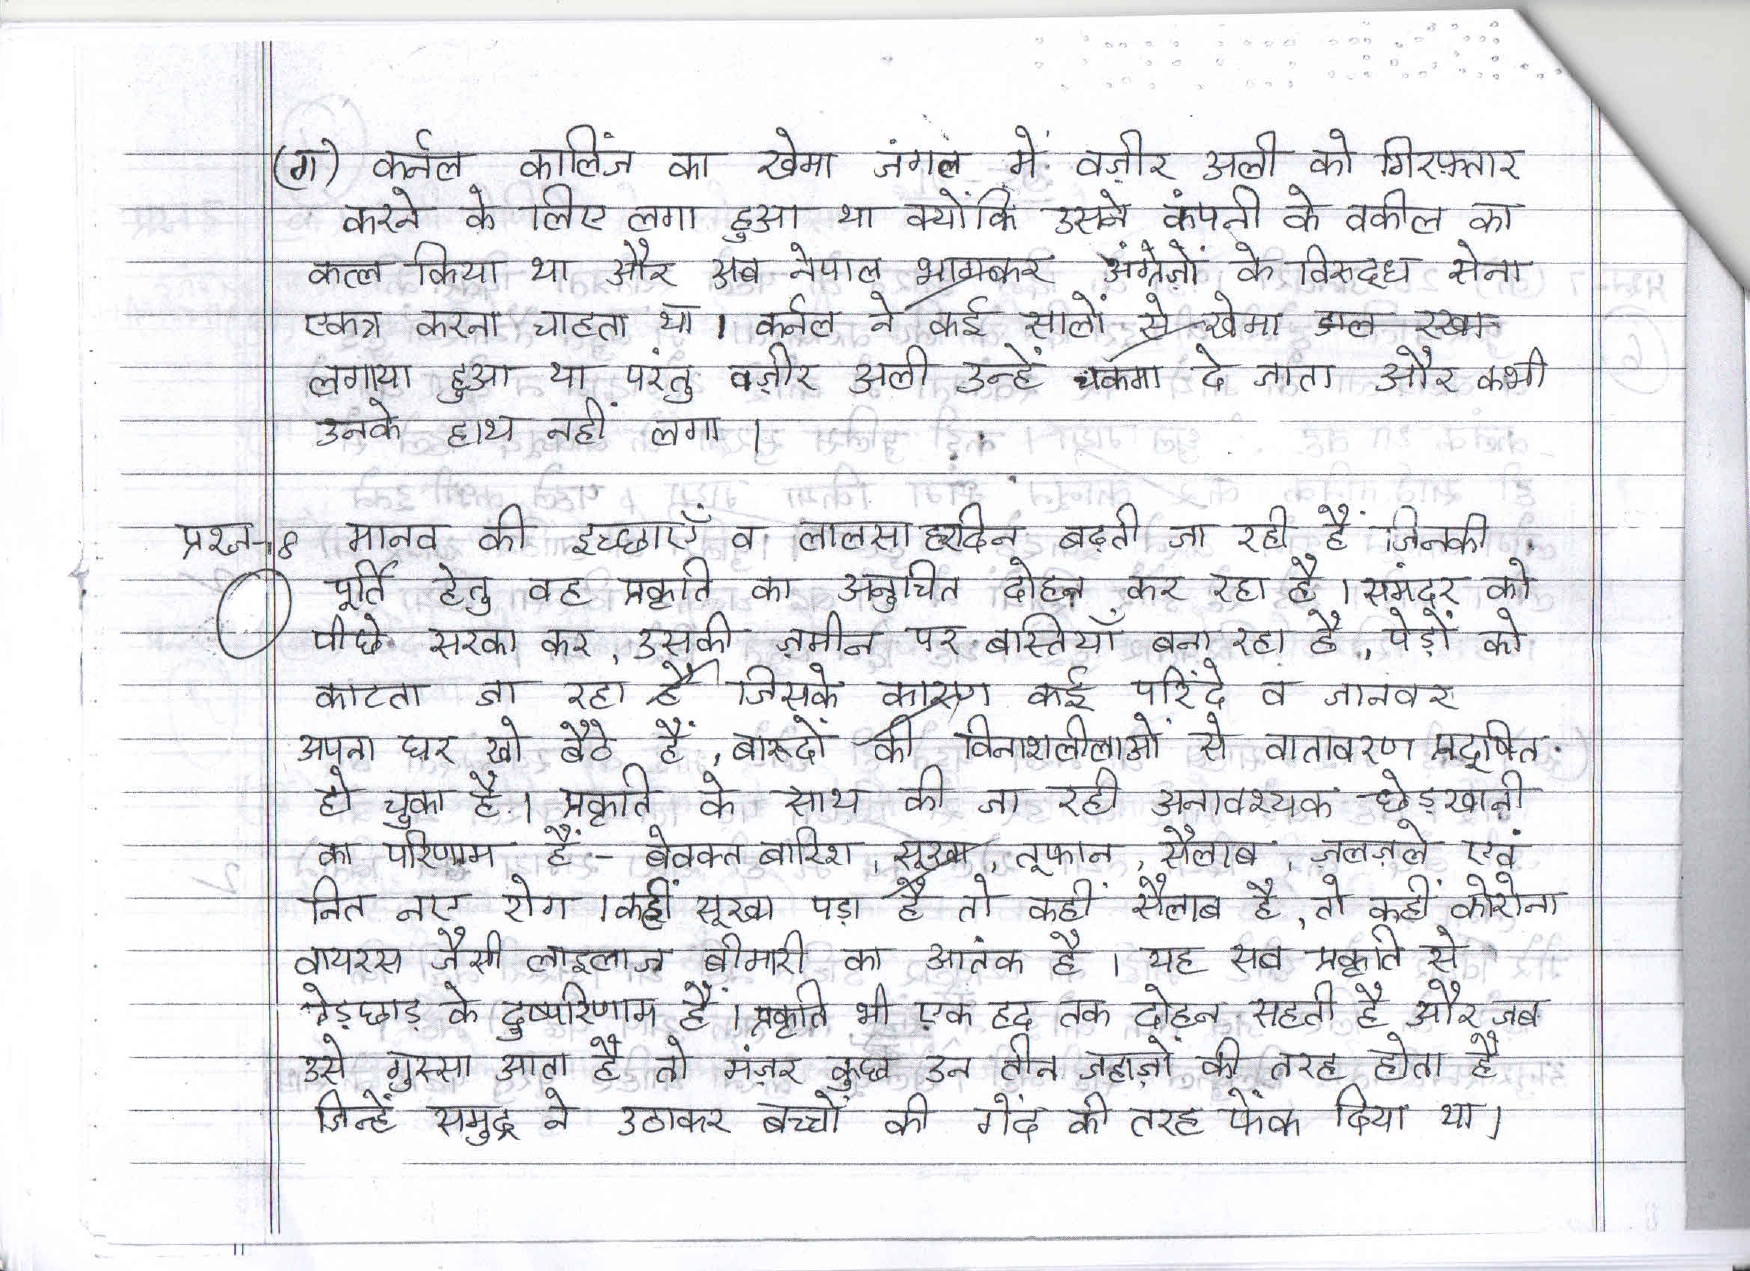 (ग) कर्नल कालिंज का खेमा जंगल में वज़ीर अली को गिरफ़्तार
करने के लिए लगा हुआ था क्योंकि उसने कंपनी के वकील का
कत्ल किया था और अब नेपाल भागकर अंग्रेज़ों के विरुद्ध सेना
एकत्र करना चाहता था। कर्नल ने कई सालों से खेमा डाल रखा
लगाया हुआ था परंतु वज़ीर अली उन्हें चकमा दे जाता और कभी
उनके हाथ नहीं लगा।
प्रश्न-8 मानव की इच्छाएँ व लालसा हरदिन बढ़ती जा रही हैं जिनकी
पूर्ति हेतु वह प्रकृति का अनुचित दोहन कर रहा है। समंदर को
पीछे सरका कर, उसकी ज़मीन पर बस्तियाँ बना रहा है, पेड़ों को
काटता जा रहा है जिसके कारण कई परिंदे व जानवर
अपना घर खो बैठे हैं, बारूदों की विनाशलीलाओं से वातावरण प्रदूषित
हो चुका है। प्रकृति के साथ की जा रही अनावश्यक छेड़खानी
का परिणाम हैं - बेवक्त बारिश, सूखा, तूफान, सैलाब, ज़लज़ले एवं
नित नए रोग। कहीं सूखा पड़ा है तो कहीं सैलाब है, तो कहीं कोरोना
वायरस जैसी लाइलाज बीमारी का आतंक है। यह सब प्रकृति से
छेड़छाड़ के दुष्परिणाम हैं। प्रकृति भी एक हद तक दोहन सहती है और जब
उसे गुस्सा आता है तो मंज़र कुछ उन तीन जहाज़ों की तरह होता है
जिन्हें समुद्र ने उठाकर बच्चों की गेंद की तरह फेंक दिया था।